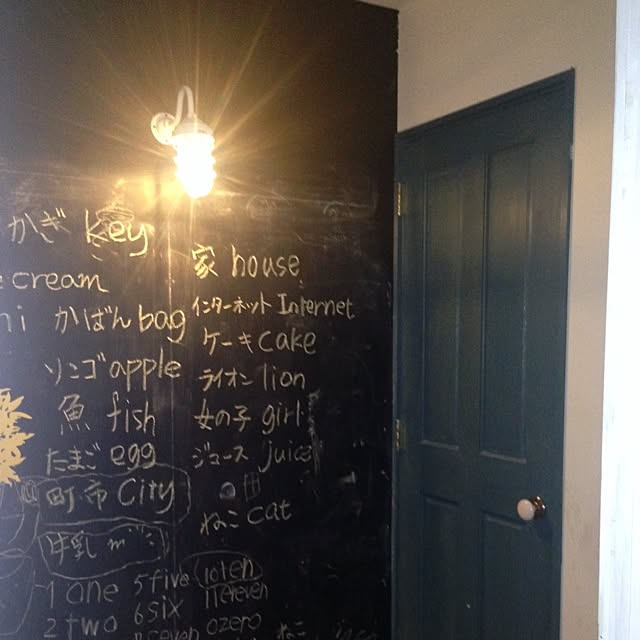 かぎ key
cream
かばん bag
ソンゴ apple
魚 fish
たまご egg
町市 City
牛乳 m
1 one 5 five
2 two 6 six
家 house
インターネット Internet
ケーキ cake
ライオン lion
女の子 girl
ジュース juice
ねこ cat
10 ten
11 ereven
0 zero
ねこ